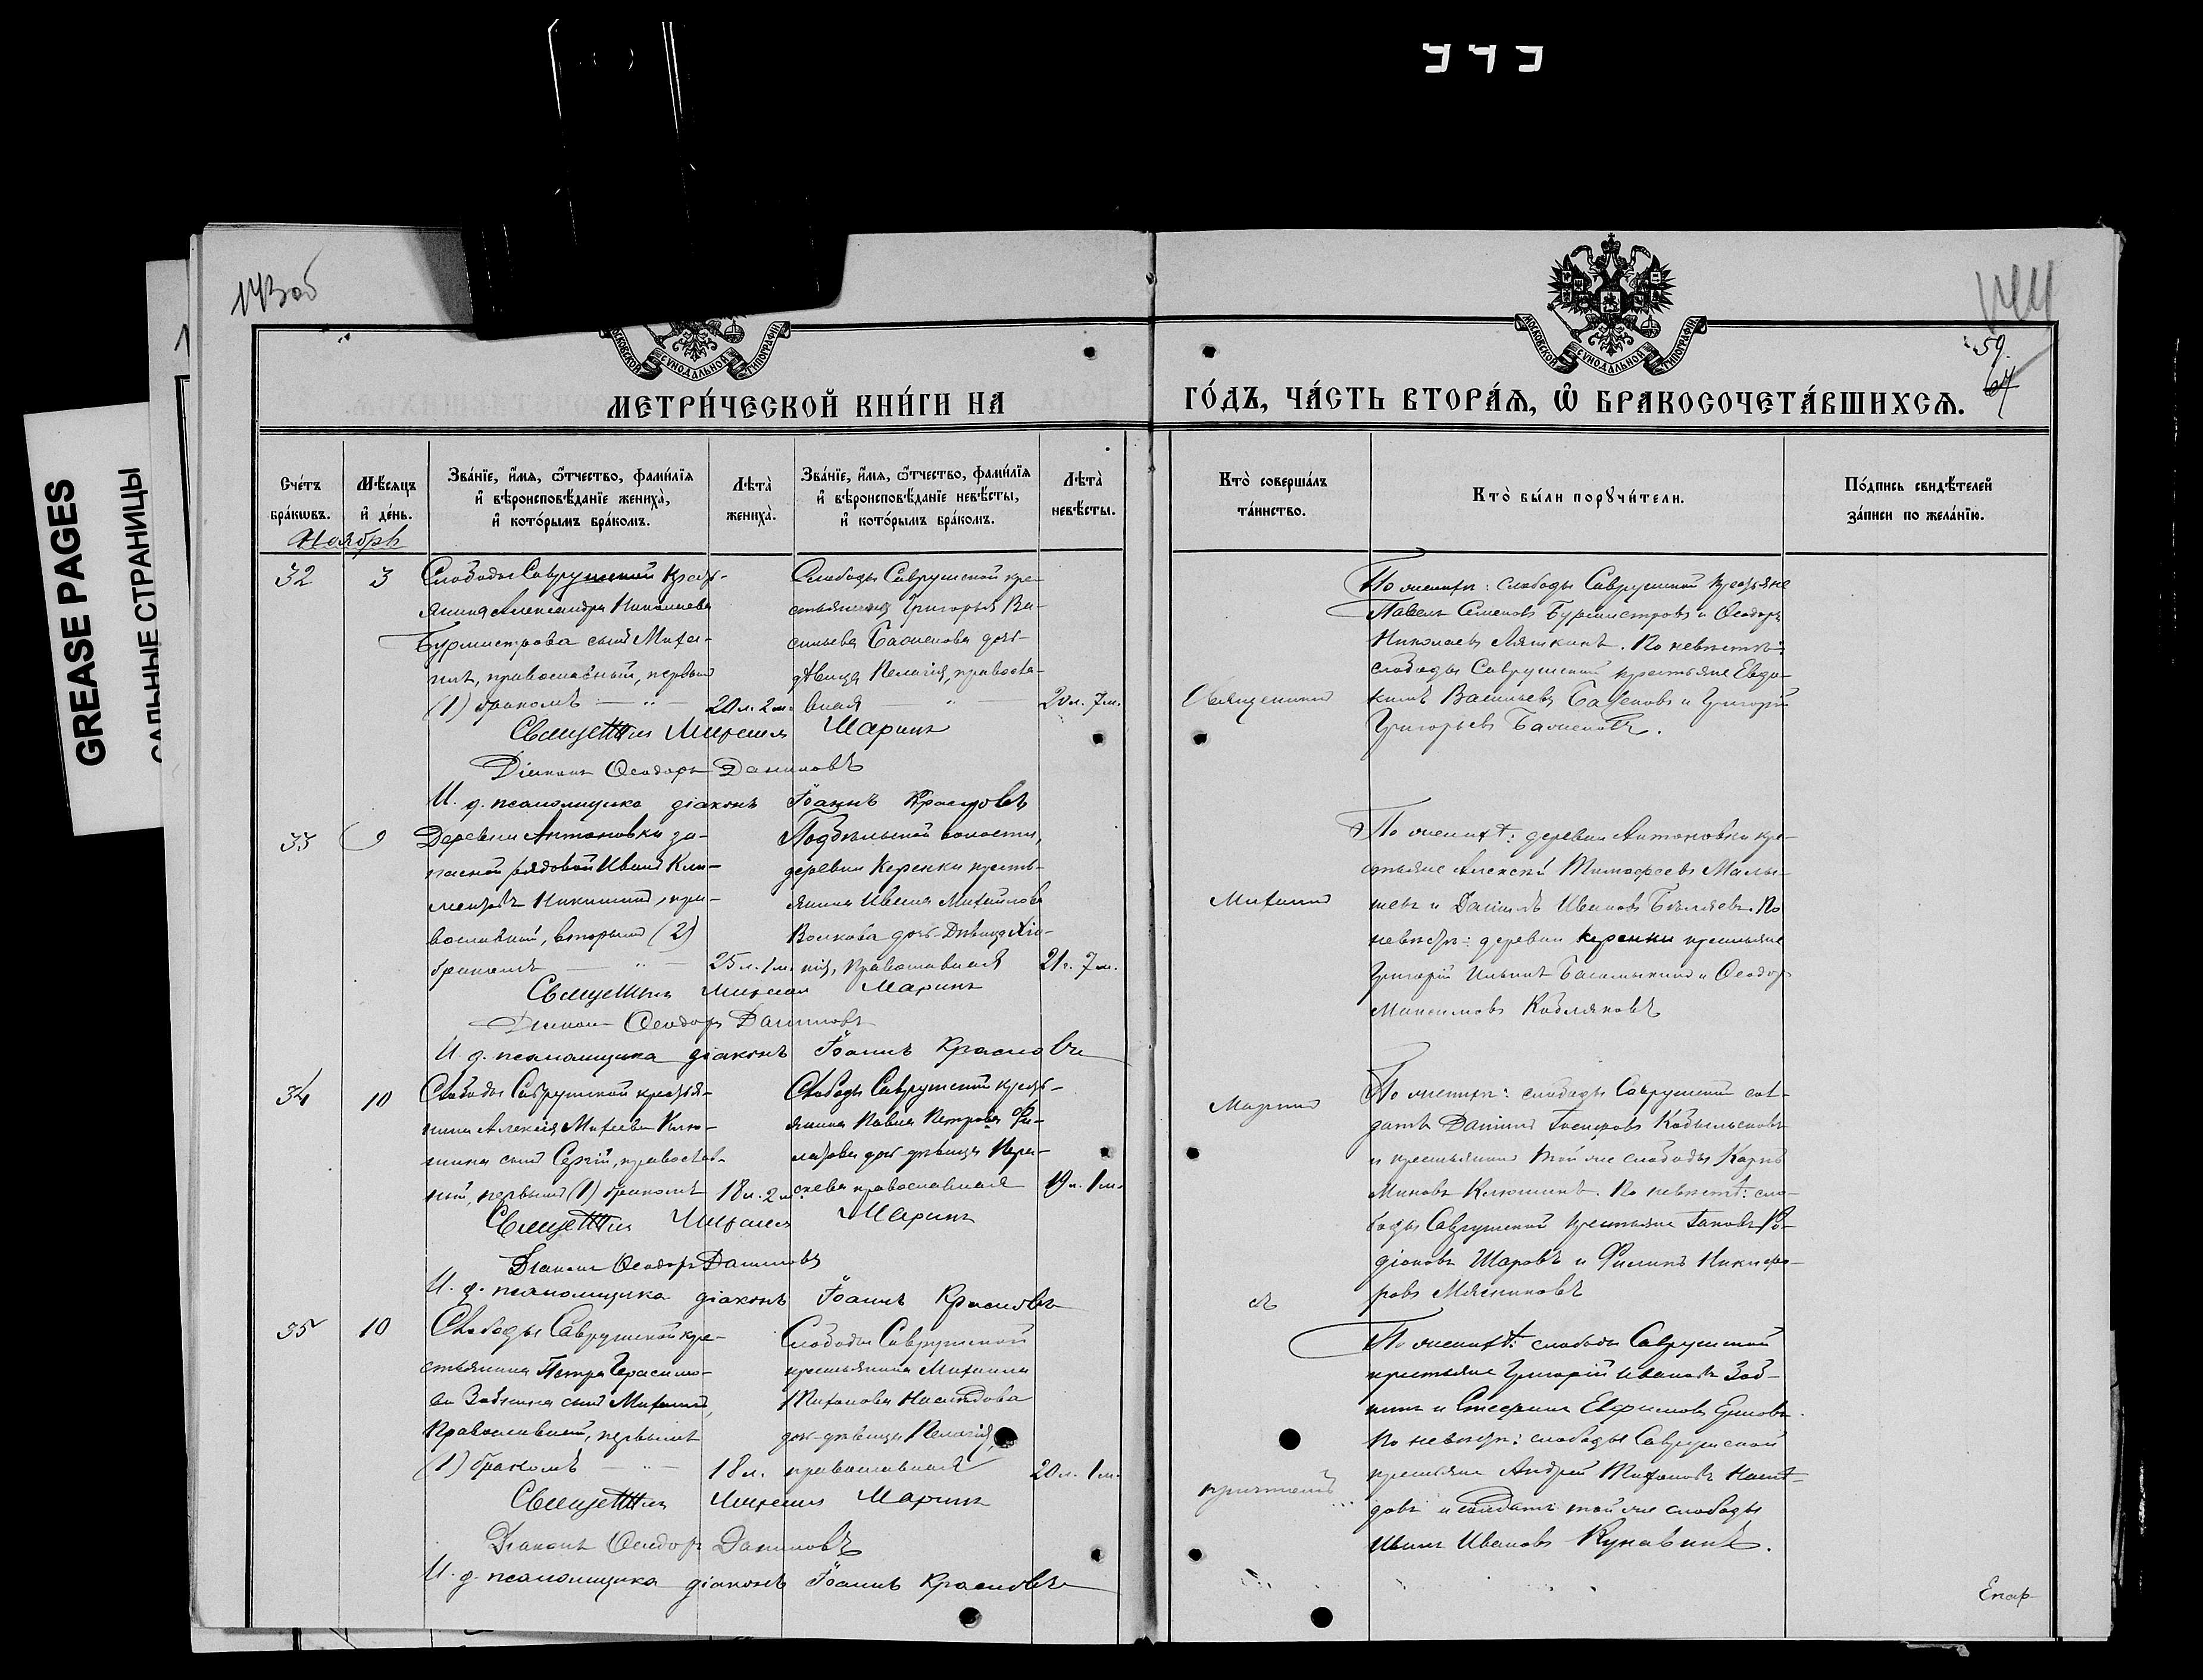 143 об
144
59.
64
GREASE PAGES
САЛЬНЫЕ СТРАНИЦЫ
МЕТРИ́ЧЕСКОЙ КНИ́ГИ НА
ГО́ДЪ, ЧА́СТЬ ВТОРА́Ѧ, Ѽ БРАКОСОЧЕТА́ВШИХСѦ.
Сче́тъ бра́кѡвъ.
Мѣ́сяцъ и҆ де́нь.
Зва́нїе, и҆́мѧ, ѻ҆́тчество, фами́лїѧ и҆ вѣроисповѣ́данїе жениха̀, и҆ кото́рымъ бра́комъ.
Лѣта̀ жениха̀.
Зва́нїе, и҆́мѧ, ѻ҆́тчество, фами́лїѧ и҆ вѣроисповѣ́данїе невѣ́сты, и҆ кото́рымъ бра́комъ.
Лѣта̀ невѣ́сты.
Кто̀ соверша́лъ та́инство.
Кто̀ бы́ли порꙋчи́тели.
По́дпись свидѣ́телей за́писи по жела́нїю.
Ноябрь
32
3
Слободы Саврушской кресть-
янина Александра Николаева
Бурмистрова сынъ Миха-
илъ, православный, первымъ
(1) бракомъ — „ —
20 л. 2 м.
Слободы Саврушской кре-
стьянина Григорья Ва-
сильева Баженова дочь
дѣвица Пелагія, правосла-
вная — „ —
20 л. 7 м.
Священникъ Михаилъ Маринъ
Діаконъ Ѳеодоръ Даниловъ
И. д. псаломщика діаконъ Іоаннъ Красновъ
Священникъ
По женихѣ: слободы Саврушской крестьяне
Павелъ Семеновъ Бурмистровъ и Ѳеодоръ
Николаевъ Ляшкинъ. По невѣстѣ:
слободы Саврушской крестьяне Евдо-
кимъ Васильевъ Баженовъ и Григорій
Григорьевъ Баженовъ.
33
9
Деревни Антоновки за-
пасной рядовой Иванъ Кли-
ментовъ Никишинъ, пра-
вославный, вторымъ (2)
бракомъ — „ —
25 л. 1 м.
Подбѣльской волости,
деревни Керенки кресть-
янина Ивана Михайлова
Волкова дочь-дѣвица Кс
нія, православная
21 г. 7 м.
Священникъ Михаилъ Маринъ
Діаконъ Ѳеодоръ Даниловъ
И. д. псаломщика діаконъ Іоаннъ Красновъ
Михаилъ
По женихѣ: деревни Антоновки кре-
стьяне Алексѣй Тимофеевъ Малы-
шевъ и Даніилъ Ивановъ Бѣляевъ. По
невѣстѣ: деревни Керенки крестьяне
Григорій Ильинъ и Ѳеодоръ
Максимовъ Кобляковъ
34
10
Слободы Саврушской крестья-
нина Алексѣя Михеева Клю-
шина сынъ Сергій, православ-
ный, первымъ (1) бракомъ
18 л. 2 м.
Слободы Саврушской кресть-
янина Павла Петрова Фи-
латова дочь дѣвица Пара-
скева православная
19 л. 1 м.
Священникъ Михаилъ Маринъ
Діаконъ Ѳеодоръ Даниловъ
И. д. псаломщика діаконъ Іоаннъ Красновъ
Маринъ
По женихѣ: слободы Саврушской сол-
датъ Даніилъ Кобыльсковъ
и крестьянинъ той же слободы Карпъ
Миновъ Клюшинъ. По невѣстѣ: сло-
боды Саврушской крестьяне Іаковъ Ро-
діоновъ Шаровъ и Филипъ Никифо-
ровъ Мясниковъ
35
10
Слободы Саврушской кре-
стьянина Петра Герасимо-
ва Зобнина сынъ Михаилъ,
православный, первымъ
(1) бракомъ — „ —
18 л.
Слободы Саврушской
крестьянина Михаила
Тихонова Наслѣдова
дочь-дѣвица Пелагія,
православная
20 л. 1 м.
Священникъ Михаилъ Маринъ
Діаконъ Ѳеодоръ Даниловъ
И. д. псаломщика діаконъ Іоаннъ Красновъ
съ
причтомъ
По женихѣ: слободы Саврушской
крестьяне Григорій Ивановъ Зоб-
нинъ и Стефанъ Евфимовъ
По невѣстѣ: слободы Саврушской
крестьяне Андрей Тихоновъ Наслѣ-
довъ и солдатъ той же слободы
Иванъ Ивановъ Кунавинъ.
Епар